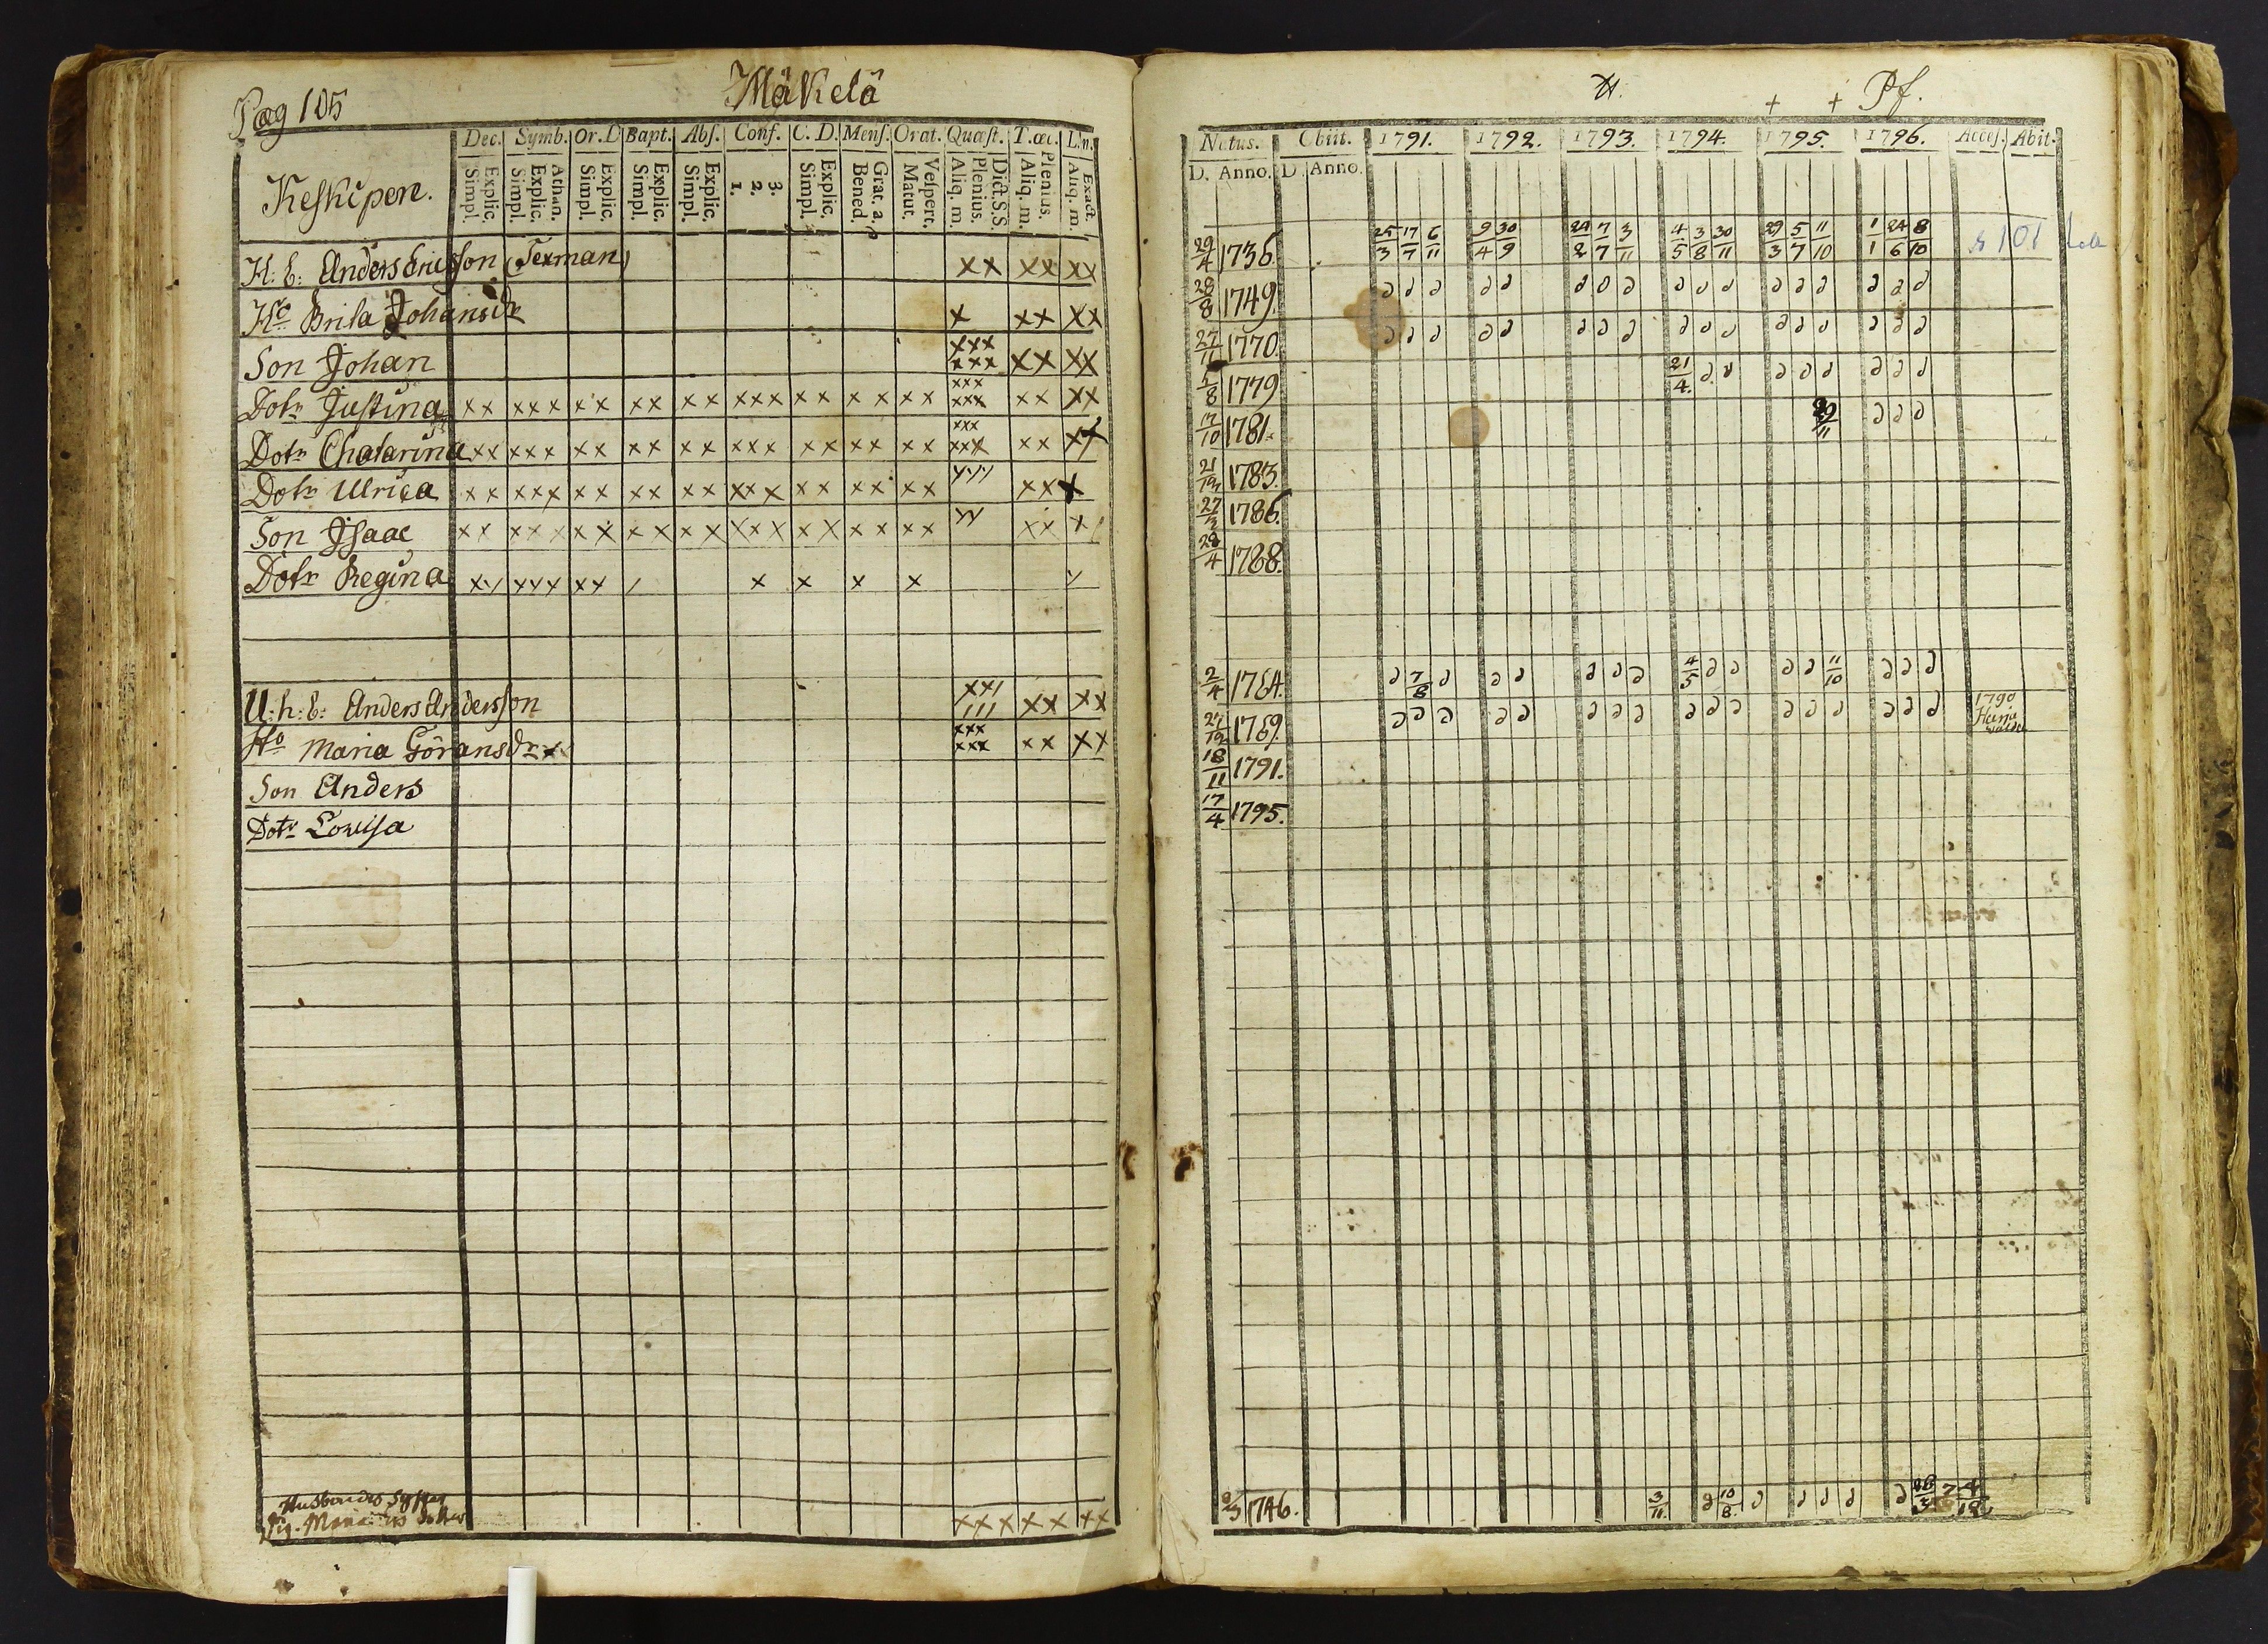 Pag 105
Mäkelä
Dec. Symb. Or. D Bapt. Abs. Conf. C. D. Mens. Orat. Quæst. T. œc. L. n.
Keskipere.
Explic. Simpl. Athan. Explic. Simpl. Explic. Simpl. Explic. Simpl. Explic. Simpl. 3. 2. 1. Explic. Simpl. Grat. a. Bened. Vespert. Matut. Dict. S.S. Plenius. Aliq. m. Plenius. Aliq. m. Exact. Aliq. m.
H: E: Anders Ericsson (Texman) xx xx xx
Ho Brita Johansdr x xx xx
Son Johan xxx xxx xx xx
Dotr Justina xx xxx xx xx xx xxx xx xx xx xxx xxx xx xx
Dotr Chatarina xx xxx xx xx xx xxx xx xx xx xxx xxx xx xx
Dotr Ulrica xx xxx xx xx xx xxx xx xx xx yyy xx x
Son Isaac xx xxx xx xx xx xxx xx xx xx yy xx x
Dotr Regina xy xxx xx / x x x x y
U: h: E: Anders Andersson xx/ /// xx xx
Ho Maria Göransdr xxx xxx xx xx
Son Anders
Dotr Lovisa
Husbondes Syster
xxx xx xx
+ + Pf.
Natus. Obiit. 1791. 1792. 1793. 1794. 1795. 1796. Acces. Abit.
D. Anno. D. Anno.
29/4 1736. 25/3 17/7 6/11 9/4 30/9 24/2 7/7 3/11 4/5 3/8 30/11 29/3 5/7 11/10 1/1 24/6 8/10 s 101
28/8 1749.
27/11 1770.
5/8 1779 21/4.
17/10 1781. 29/11
21/12 1783.
27/3 1786.
28/4 1788.
2/4 1764. 7/8 4/5 11/10
27/12 1769. 1790
18/11 1791.
17/4 1795.
2/3 1746. 3/11. 10/8.